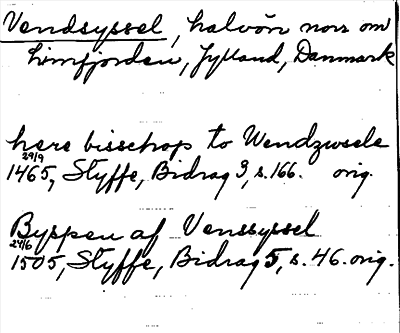 Vendsyssel, halvön norr om
Limfjorden, Jylland, Danmark
here bisschop to Wendzwsele
29/9
1465, Styffe, Bidrag 3, s. 166. orig.
Byspen af Venssyssel
24/6
1505, Styffe, Bidrag 5, s. 46. orig.